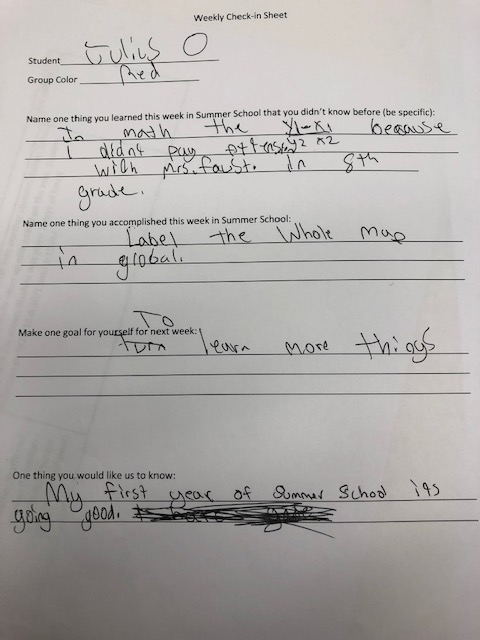 Weekly Check-in Sheet
Student Julius O
Group Color Red
Name one thing you learned this week in Summer School that you didn't know before (be specific):
In math the y1-x1 because
I didnt pay attension y2 x2
with Mrs. Faust. in 8th
grade.
Name one thing you accomplished this week in Summer School:
Label the Whole map
in global.
To
Make one goal for yourself for next week:
learn more things
One thing you would like us to know:
My first year of Summer School its
going good.